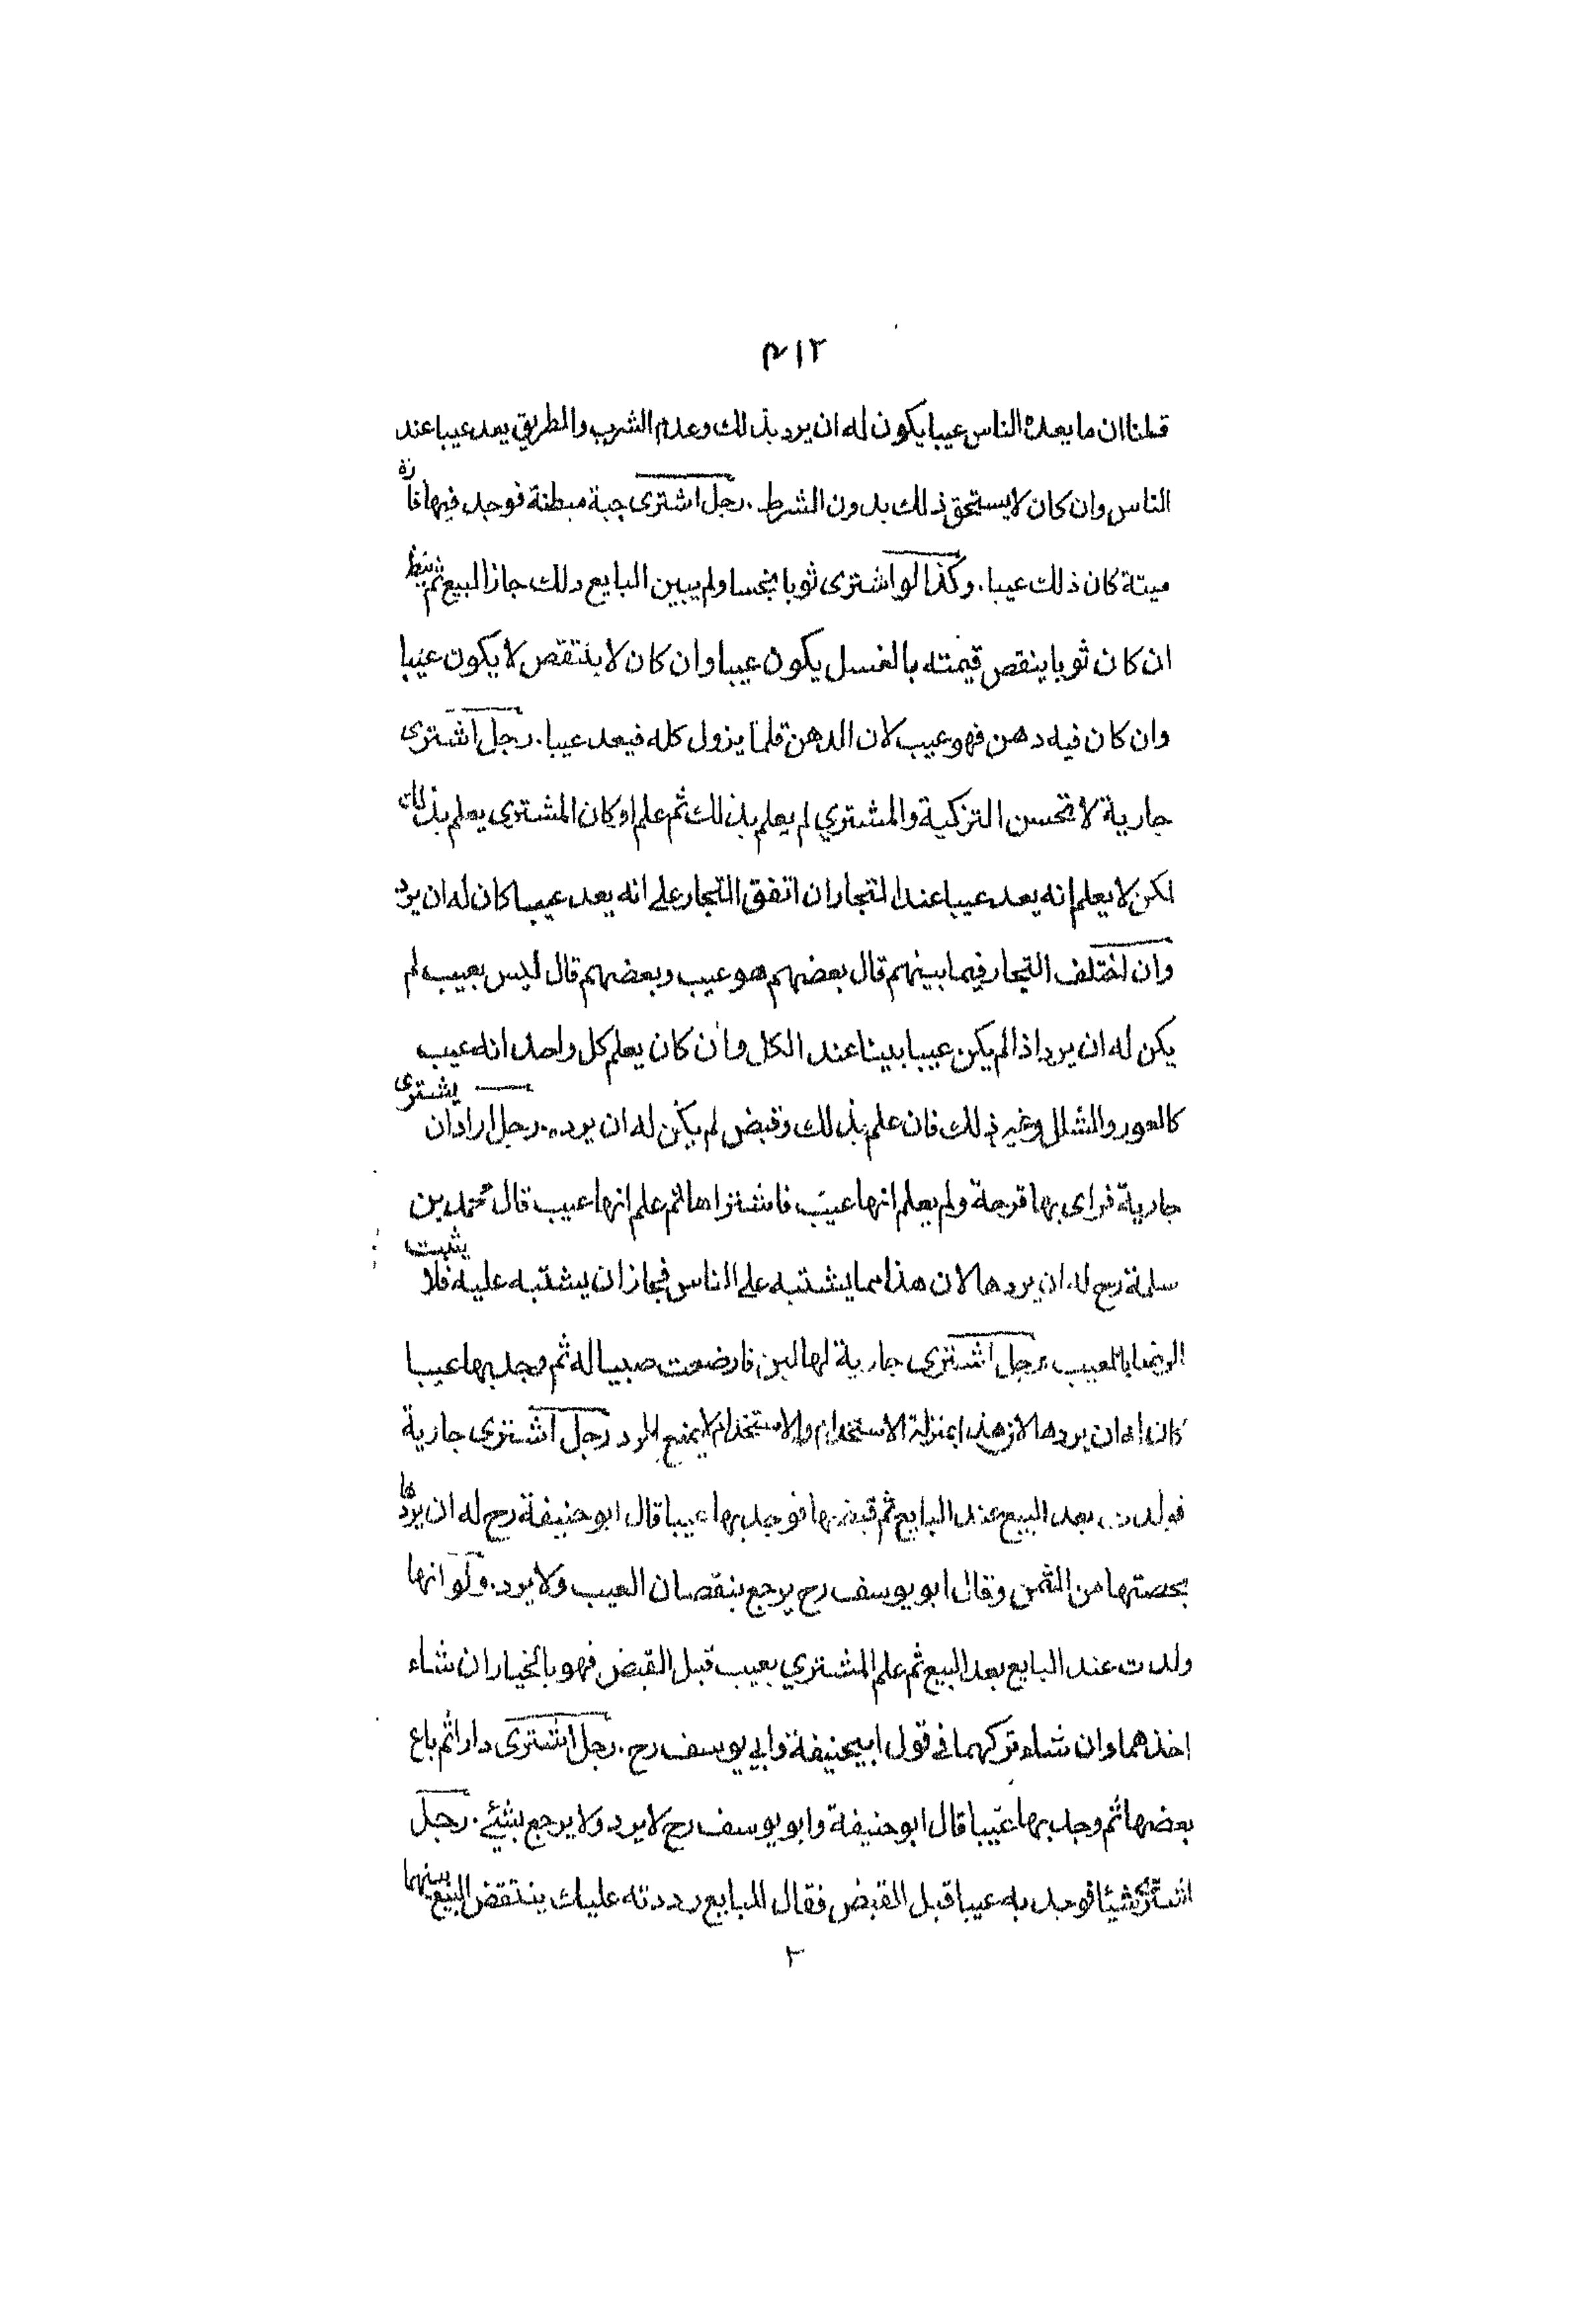 ٣١٢
قلنا ان ما يعده الناس عيبا يكون له ان يرد بذلك وعدم الشرب والطريق يعد عيبا عند
الناس وان كان لا يستحق ذلك بدون الشرط . رجل اشترى جبة مبطنة فوجد فيها فارة
ميتة كان ذلك عيبا . وكذا لو اشترى ثوبا نجسا ولم يبين البايع دلك جاز البيع ثم ينظر
ان كان ثوبا ينقص قيمته بالغسل يكون عيبا وان كان لا ينتقص لا يكون عيبا
وان كان فيه دهن فهو عيب لان الدهن قلما يزول كله فيعد عيبا . رجل اشترى
جارية لا تحسن التزكية والمشتري لم يعلم بذلك ثم علم او كان المشترى يعلم بذلك
لكن لا يعلم انه يعد عيبا عند التجار ان اتفق التجار على انه يعد عيبا كان له ان يرد
وان اختلف التجار فيما بينهم قال بعضهم هو عيب وبعضهم قال ليس بعيب لم
يكن له ان يرد اذا لم يكن عيبا بينا عند الكل وان كان يعلم كل واحد انه عيب
كالعور والشلل وغير ذلك فان علم بذلك وقبض لم يكن له ان يرد . رجل اراد ان يشترى
جارية فراى بها قرحة ولم يعلم انها عيب فاشتراها ثم علم انها عيب قال محمد بن
سلمة رح له ان يردها لان هذا مما يشتبه على الناس فجاز ان يشتبه عليه فلا يثبت
الرضا بالعيب . رجل اشترى جارية لها لبن فارضعت صبيا له ثم وجد بها عيبا
كان له ان يردها لان هذا بمنزلة الاستخدام والاستخدام لا يمنع الرد رجل اشترى جارية
فولدت بعد البيع عند البايع ثم قبضها فوجد بها عيبا قال ابو حنيفة رح له ان يردها
بحصتها من الثمن وقال ابو يوسف رح يرجع بنقصان العيب ولا يرد . ولو انها
ولدت عند البايع بعد البيع ثم علم المشتري بعيب قبل القبض فهو بالخيار ان شاء
اخذهما وان شاء تركهما في قول ابيحنيفة وابي يوسف رح . رجل اشترى دارا ثم باع
بعضها ثم وجد بها عيبا قال ابو حنيفة وابو يوسف رح لا يرد ولا يرجع بشئ . رجل
اشترى شيئا فوجد به عيبا قبل القبض فقال للبايع رددته عليك ينتقض البيع بينهما
٢